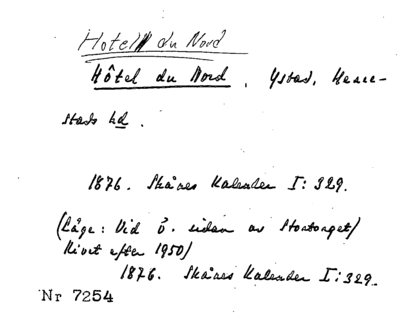 Hotel du Nord
Hôtel du Nord, Ystad, Herre-
stads hd.
1876. Skånes Kalender I: 329.
(Läge: Vid ö. sidan av Stortorget/
Rivet efter 1950)
1876. Skånes Kalender I: 329.
Nr 7254